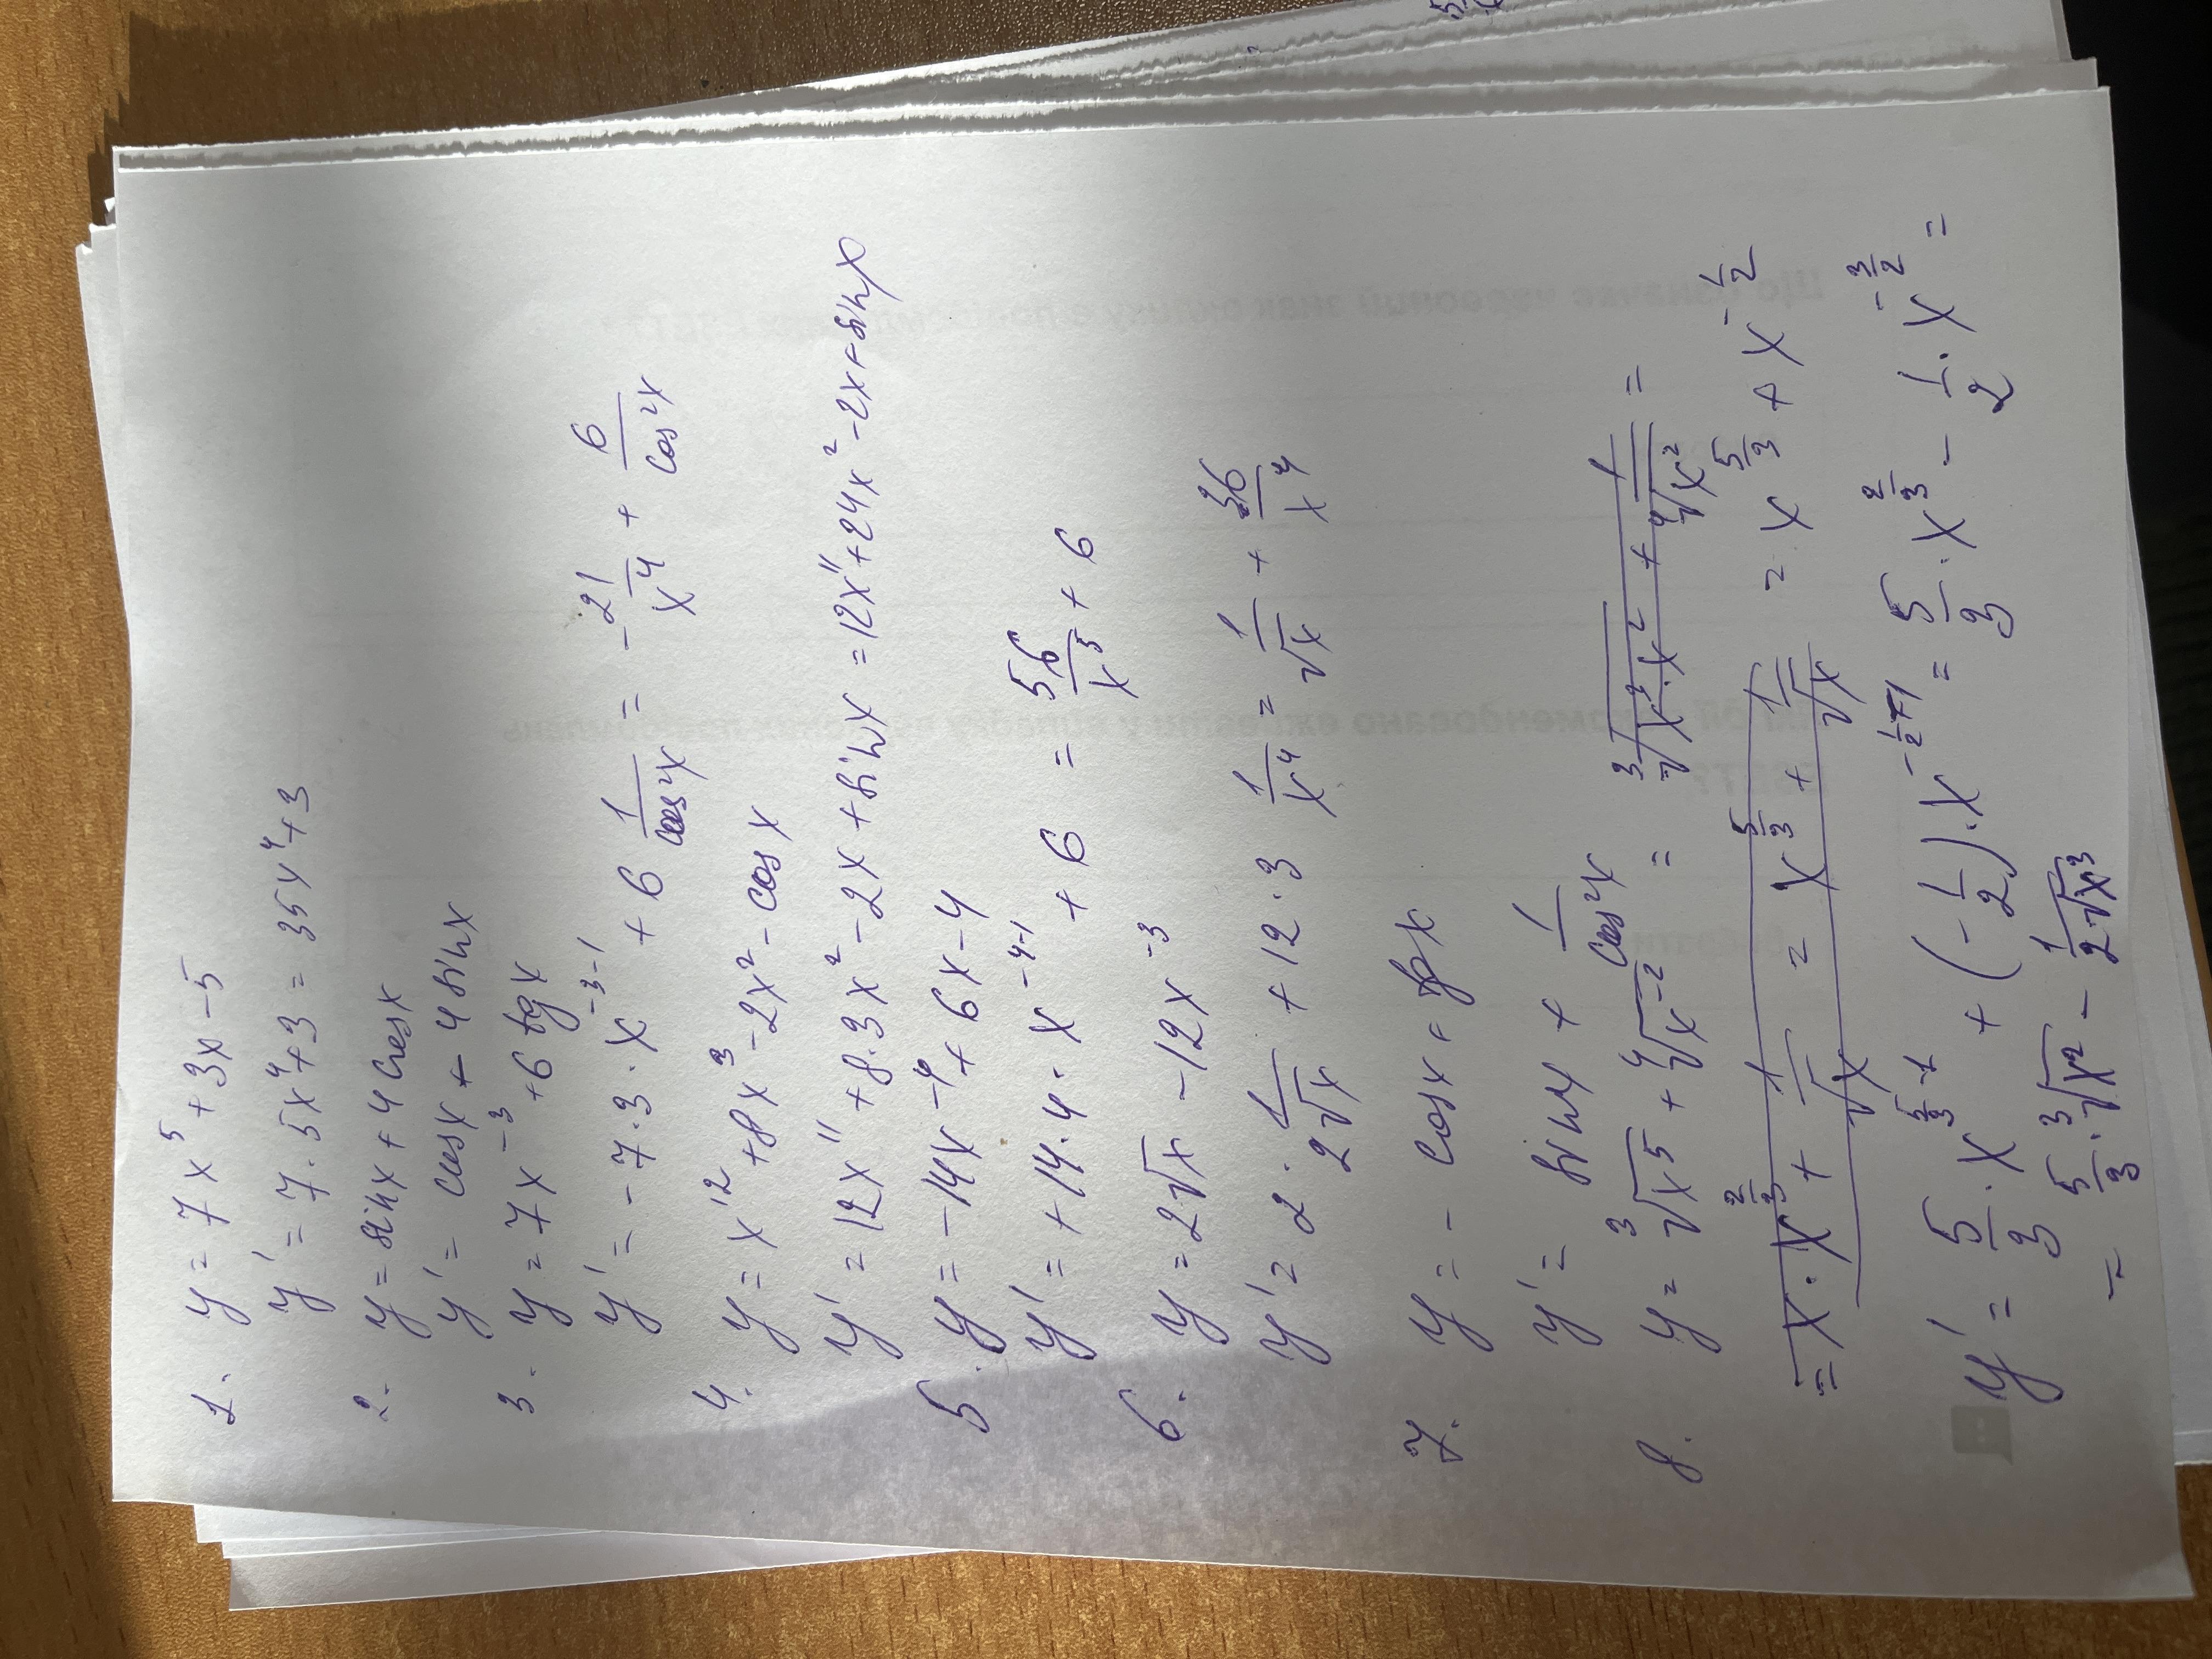 1. y = 7x⁵ + 3x - 5
y' = 7·5x⁴ + 3 = 35x⁴ + 3
2. y = sinx + 4cosx
y' = cosx - 4sinx
3. y = 7x⁻³ + 6tgx
y' = -7·3·x⁻³⁻¹ + 6 1/cos²x = -21/x⁴ + 6/cos²x
4. y = x¹² + 8x³ - 2x² - cosx
y' = 12x¹¹ + 8·3x² - 2x + sinx = 12x¹¹ + 24x² - 2x + sinx
5. y = -14x⁻⁴ + 6x - 4
y' = +14·4·x⁻⁴⁻¹ + 6 = 56/x⁵ + 6
6. y = 2√x - 12x⁻³
y' = 2·1/(2√x) + 12·3 1/x⁴ = 1/√x + 36/x⁴
7. y = - cosx + tgx
y' = sinx + 1/cos²x
8. y = ³√x⁵ + ⁴√x⁻² = ³√(x³·x²) + 1/⁴√x² =
= x·x^(2/3) + 1/√x = x^(5/3) + 1/√x = x^(5/3) + x^(-1/2)
y' = 5/3·x^(5/3-1) + (-1/2)·x^(-1/2-1) = 5/3·x^(2/3) - 1/2·x^(-3/2) =
= 5/3·³√x² - 1/(2√x³)